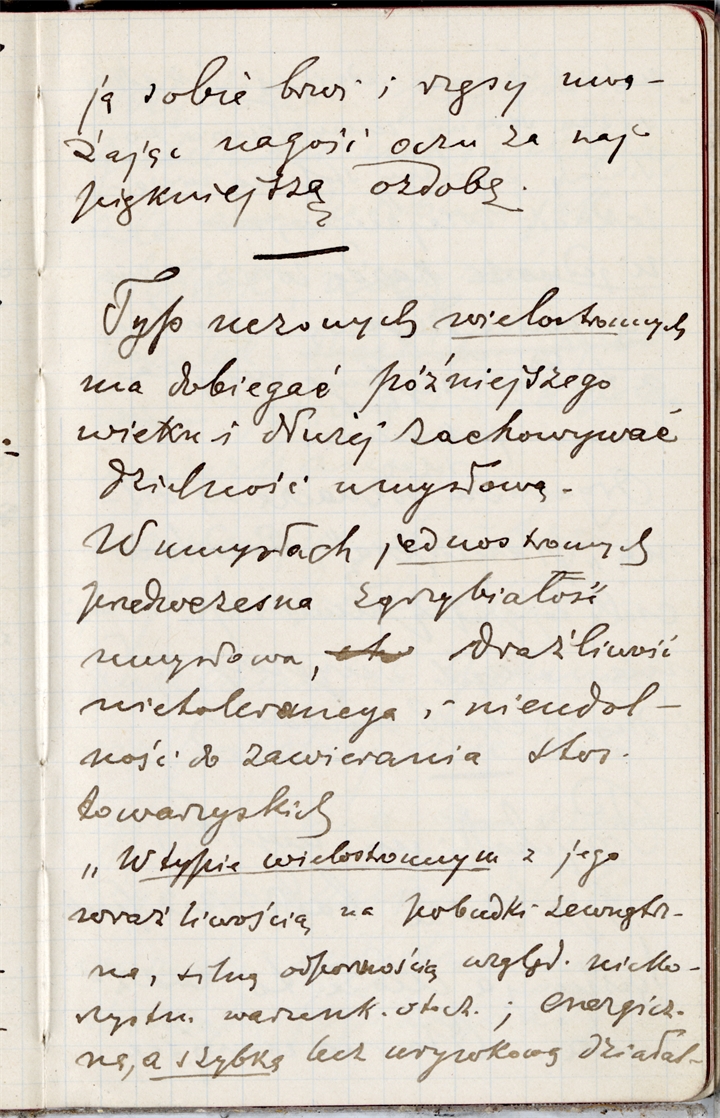 ją sobie brwi i rzęsy uwa-
żając nagość oczu za naj-
piękniejszą ozdobę.
Typ uczonych wielostronnych
ma dobiegać późniejszego
wieku i dłużej zachowywać
dzielność umysłową.
W umysłach jednostronnych
przedwczesna zgrzybiałość
umysłowa, drażliwość
nietolerancya, i nieudol-
ność do zawierania stos.
towarzyskich
„W typie wielostronnym z jego
wrażliwością na pobudki zewnętrz-
ne, silną odpornością względ. nieko-
rzystn. warunk. otocz. ; energicz-
ną, a szybką lecz urywkową działal-